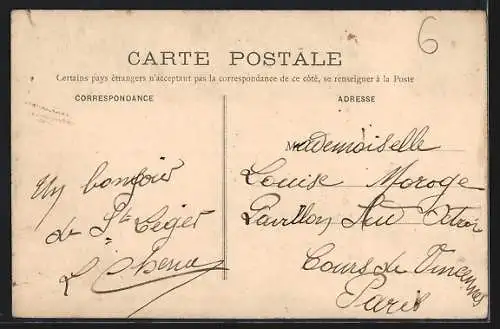 6
CARTE POSTALE
Certains pays étrangers n'acceptant pas la correspondance de ce côté, se renseigner à la Poste
CORRESPONDANCE
ADRESSE
Un bonjour
de St Leger
L
Mademoiselle
Louise Moroge
Pavillon
Cours de Vincennes
Paris